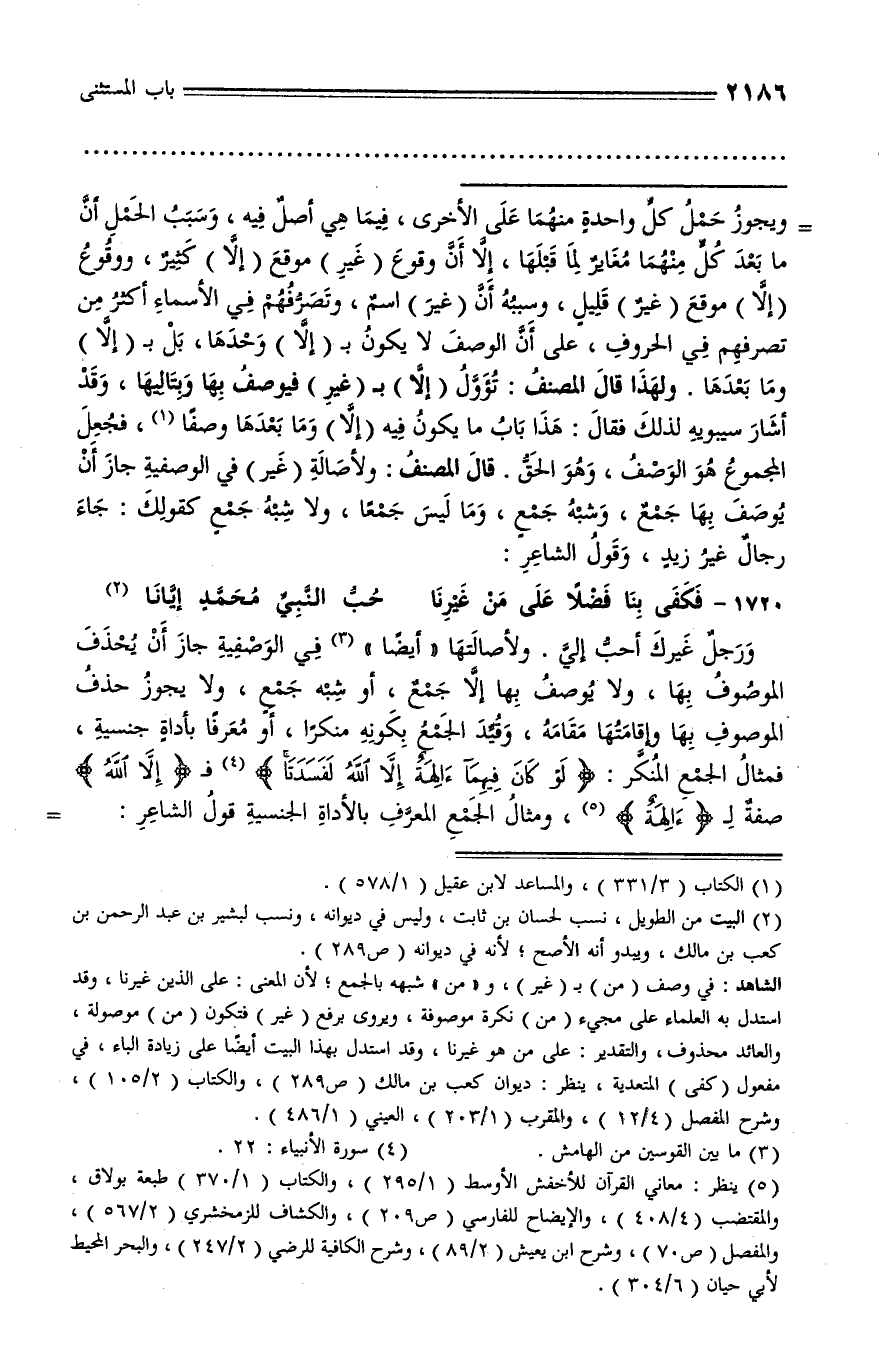 ٢١٨٦ باب المستثنى
................................................................
= ويجوزُ حَمْلُ كلِّ واحدةٍ منهُمَا عَلَى الأخرى ، فِيمَا هِي أصلٌ فِيه ، وَسَبَبُ الحَمْلِ أنَّ
ما بَعْدَ كُلٍّ مِنْهُمَا مُغَايرٌ لِمَا قَبْلَهَا ، إلَّا أنَّ وقوعَ ( غَيرِ ) موقعَ ( إلَّا ) كَثِيرٌ ، ووقُوعُ
( إلَّا ) موقعَ ( غيرٌ ) قَلِيلٍ ، وسببُهُ أنَّ ( غيرَ ) اسمٌ ، وتَصَرُّفُهُمْ فِي الأسماءِ أكثرُ مِن
تصرفهِم فِي الحروفِ ، على أَنَّ الوصفَ لا يكونُ بـ ( إلَّا ) وَحْدَهَا، بَلْ بـ ( إلَّا )
ومَا بَعْدَهَا . ولهَذَا قالَ المصنفُ : تُؤَوَّلُ ( إلَّا ) بـ ( غيرِ ) فيوصفُ بِهَا وَبِتَالِيهَا ، وَقَدْ
أشَارَ سيبويهِ لذلكَ فقالَ : هَذَا بَابُ ما يكونُ فِيه (إلَّا) وَمَا بَعْدَهَا وصفًا (١) ، فجُعِلَ
المجموعُ هُوَ الوَصْفُ ، وَهُوَ الحَقُّ . قالَ المصنفُ : ولأصَالَةِ (غَير) في الوصفيةِ جازَ أَنْ
يُوصَفَ بِهَا جَمْعٌ ، وَشبْهُ جَمْعٍ ، وَمَا لَيسَ جَمْعًا ، ولا شِبْهُ جَمْعٍ كقولِكَ : جَاءَ
رجالٌ غيرُ زيدٍ ، وَقَولُ الشاعِرِ :
١٧٢٠ - فَكَفَى بِنَا فَضْلًا عَلَى مَنْ غَيْرِنَا حُبُّ النَّبِيِّ مُحَمَّدٍ إيَّانَا (٢)
وَرَجلٌ غَيركَ أحبُّ إليَّ . ولأصالَتهَا « أيضًا » (٣) فِي الوَصْفِيةِ جازَ أَنْ يُحْذَفَ
الموصُوفُ بِهَا ، ولا يُوصفُ بِها إلَّا جَمْعٌ ، أو شِبْه جَمْعٍ ، ولا يجوزُ حذفُ
الموصوفِ بِهَا وإقامَتُهَا مَقَامَهُ ، وَقُيِّدَ الجَمْعُ بِكَونِهِ منكرًا ، أَو مُعَرفًا بأداةٍ جنسيةٍ ،
فمثالُ الجمْعِ المُنكَّر : ﴿ لَوْ كَانَ فِيهِمَآ ءَالِهَةٌ إِلَّا ٱللَّهُ لَفَسَدَتَا ﴾ (٤) فـ ﴿ إِلَّا ٱللَّهُ ﴾
صفةٌ لِـ ﴿ ءَالِهَةٌ ﴾ (٥) ، ومثالُ الجَمْعِ المعرَّفِ بالأداةِ الجنسيةِ قولُ الشاعِرِ : =
(١) الكتاب ( ٣٣١/٣ ) ، والمساعد لابن عقيل ( ٥٧٨/١ ) .
(٢) البيت من الطويل ، نسب لحسان بن ثابت ، وليس في ديوانه ، ونسب لبشير بن عبد الرحمن بن
كعب بن مالك ، ويبدو أنه الأصح ؛ لأنه في ديوانه ( ص٢٨٩ ) .
الشاهد : في وصف ( من ) بـ ( غير ) ، و « من » شبهه بالجمع ؛ لأن المعنى : على الذين غيرنا ، وقد
استدل به العلماء على مجيء ( من ) نكرة موصوفة ، ويروى برفع ( غير ) فتكون ( من ) موصولة ،
والعائد محذوف، والتقدير : على من هو غيرنا ، وقد استدل بهذا البيت أيضًا على زيادة الباء ، في
مفعول (كفى ) المتعدية ، ينظر : ديوان كعب بن مالك ( ص٢٨٩ ) ، والكتاب ( ١٠٥/٢ ) ،
وشرح المفصل ( ١٢/٤ ) ، والمقرب ( ٢٠٣/١ ) ، العيني ( ٤٨٦/١ ) .
(٣) ما بين القوسين من الهامش . (٤) سورة الأنبياء : ٢٢ .
(٥) ينظر : معاني القرآن للأخفش الأوسط ( ٢٩٥/١ ) ، والكتاب ( ٣٧٠/١ ) طبعة بولاق ،
والمقتضب ( ٤٠٨/٤ ) ، والإيضاح للفارسي ( ص٢٠٩ ) ، والكشاف للزمخشري ( ٥٦٧/٢ ) ،
والمفصل ( ص٧٠ ) ، وشرح ابن يعيش ( ٨٩/٢ ) ، وشرح الكافية للرضي ( ٢٤٧/٢ ) ، والبحر المحيط
لأبي حيان ( ٣٠٤/٦ ) .